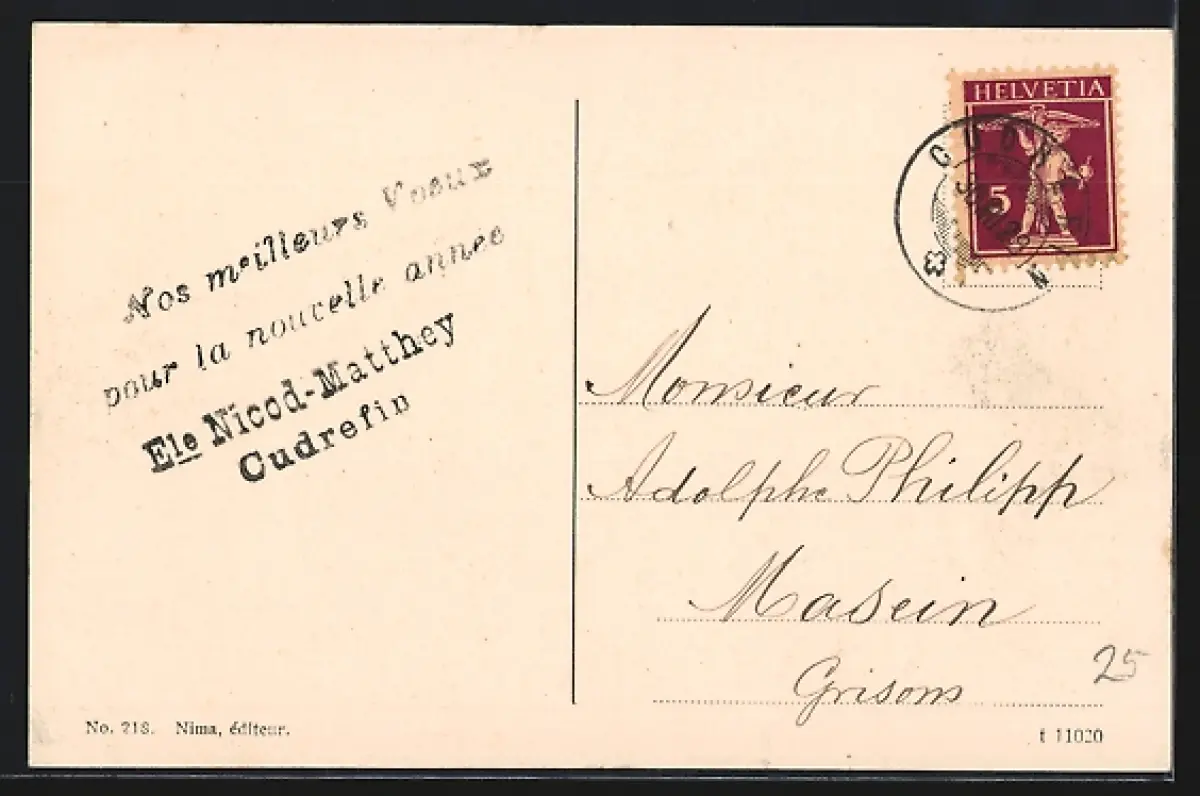 Nos meilleurs Voeux
pour la nouvelle année
Ele Nicod-Matthey
Cudrefin
No. 218. Nima, éditeur.
HELVETIA
5
CUDREFIN
Monsieur
Adolphe Philipp
Masein
Grisons
25
t 11020